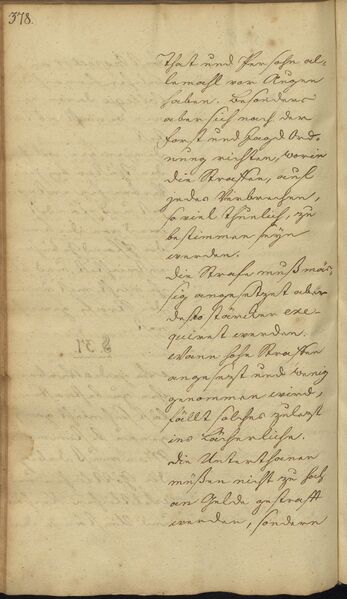 378.
That und Persohn al-
lemahl vor Augen
haben. Besonders
aber sich nach der
Forst und Jagd Ord-
nung richten, worin
die Straffen, auf
jedes Verbrechen,
so viel thunlich, zu
bestimmen seyn
werden.
Die Strafe muß mäs-
sig angesetzet aber
desto stärcker exe-
quiret werden.
Wann hohe Straffen
angesetzt und wenig
genommen wird,
fällt solches zuletzt
ins Lächerliche.
Die Unterthanen
müßen nicht zu hoch
an Gelde gestrafft
werden, sondern
§. 37.